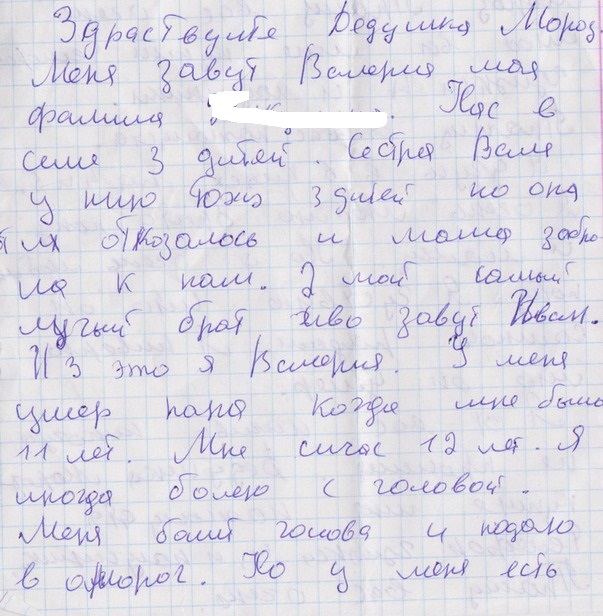 Здраствуйте Дедушка Мороз.
Меня завут Валерия моя
фамилия. Нас в
семе 3 дитей. Сестра Валя
у нию тожэ 3 дитей но она
от них отказалось и мама забра
ла к нам. 2 мой самый
лучый брат ево завут Иван.
И 3 это я Валерия. У меня
умер папа когда мне было
11 лет. Мне сичас 12 лет. Я
иногда болею с головой.
Меня болит голова и подаю
в оморог. Но у меня есть